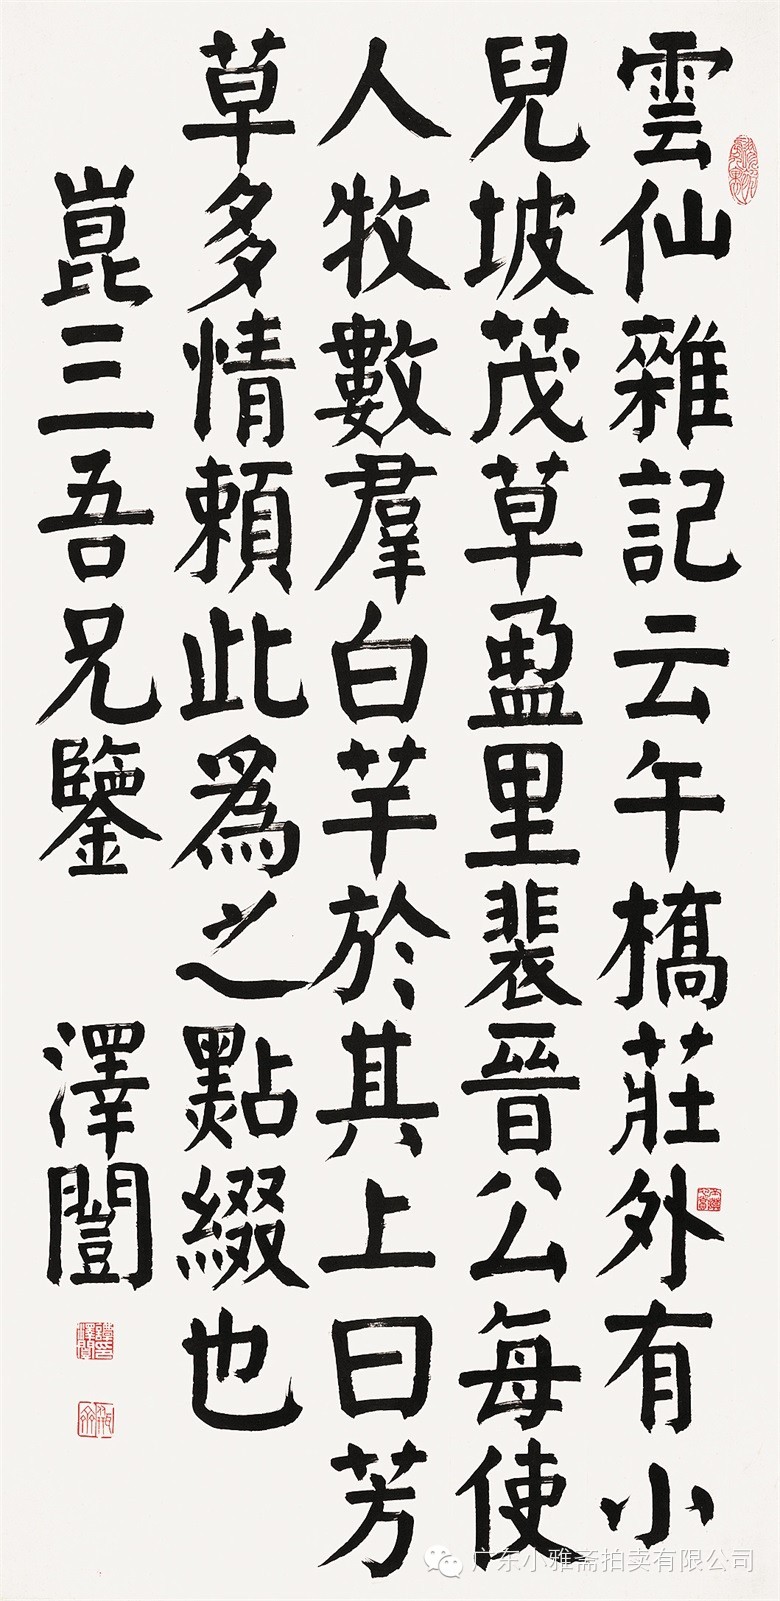 雲仙雜記云午橋莊外有小
兒坡茂草盈里裴晉公每使
人牧數羣白芊於其上曰芳
草多情賴此為之點綴也
崑三吾兄鑒 澤闓
广东小雅斋拍卖有限公司